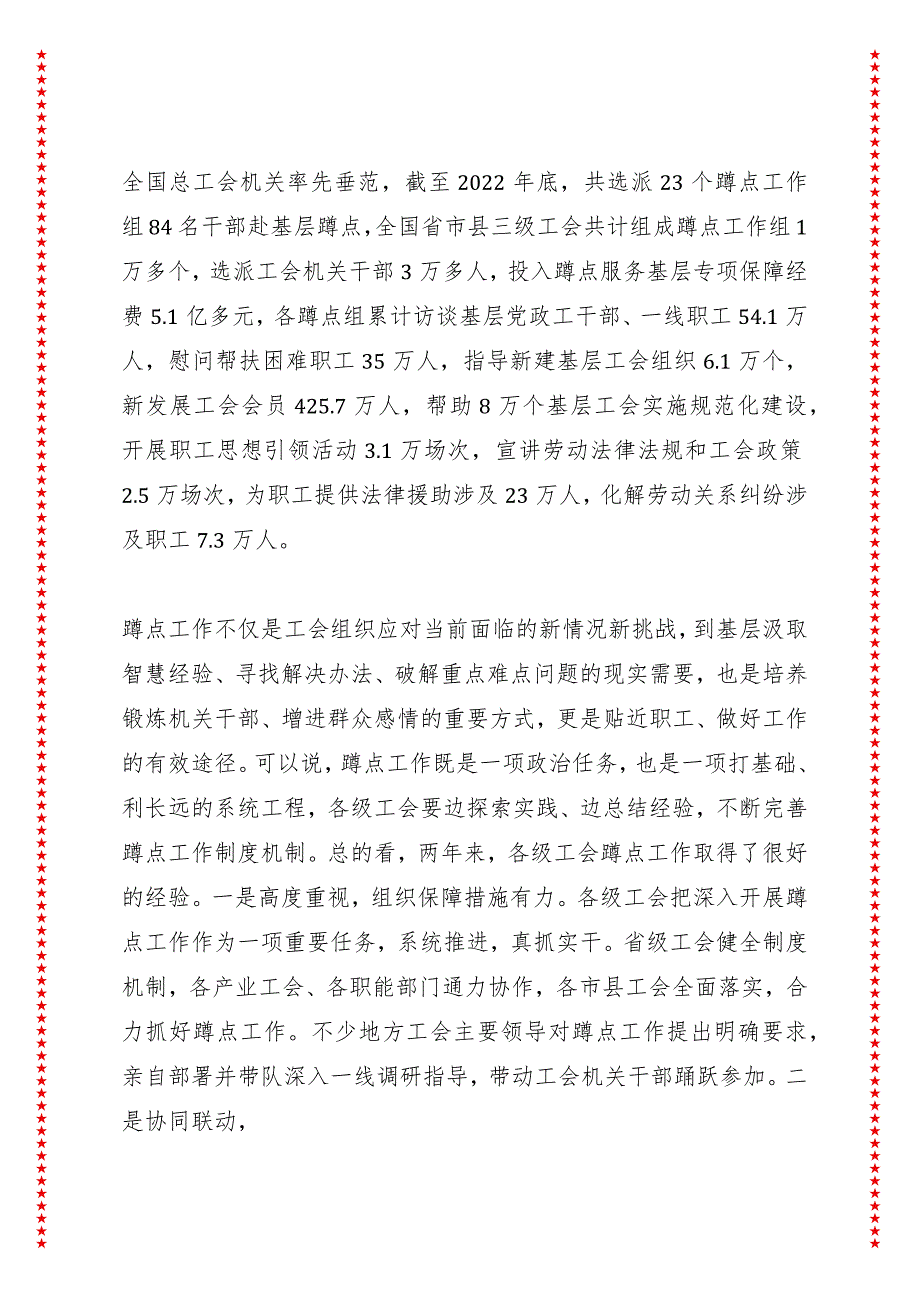 全国总工会机关率先垂范，截至 2022 年底，共选派 23 个蹲点工作
组 84 名干部赴基层蹲点，全国省市县三级工会共计组成蹲点工作组 1
万多个，选派工会机关干部 3 万多人，投入蹲点服务基层专项保障经
费 5.1 亿多元，各蹲点组累计访谈基层党政工干部、一线职工 54.1 万
人，慰问帮扶困难职工 35 万人，指导新建基层工会组织 6.1 万个，
新发展工会会员 425.7 万人，帮助 8 万个基层工会实施规范化建设，
开展职工思想引领活动 3.1 万场次，宣讲劳动法律法规和工会政策
2.5 万场次，为职工提供法律援助涉及 23 万人，化解劳动关系纠纷涉
及职工 7.3 万人。
蹲点工作不仅是工会组织应对当前面临的新情况新挑战，到基层汲取
智慧经验、寻找解决办法、破解重点难点问题的现实需要，也是培养
锻炼机关干部、增进群众感情的重要方式，更是贴近职工、做好工作
的有效途径。可以说，蹲点工作既是一项政治任务，也是一项打基础、
利长远的系统工程，各级工会要边探索实践、边总结经验，不断完善
蹲点工作制度机制。总的看，两年来，各级工会蹲点工作取得了很好
的经验。一是高度重视，组织保障措施有力。各级工会把深入开展蹲
点工作作为一项重要任务，系统推进，真抓实干。省级工会健全制度
机制，各产业工会、各职能部门通力协作，各市县工会全面落实，合
力抓好蹲点工作。不少地方工会主要领导对蹲点工作提出明确要求，
亲自部署并带队深入一线调研指导，带动工会机关干部踊跃参加。二
是协同联动，